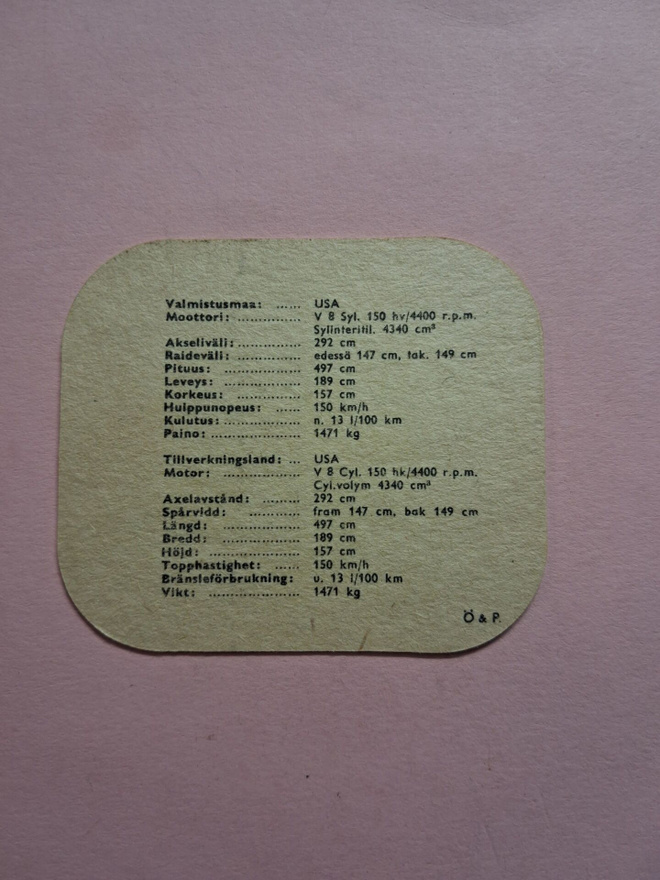 Valmistusmaa: ...... USA
Moottori: ............... V 8 Syl. 150 hv/4400 r.p.m.
Sylinteritil. 4340 cm³
Akseliväli: ............... 292 cm
Raideväli: ............... edessä 147 cm, tak. 149 cm
Pituus: .................. 497 cm
Leveys: .................. 189 cm
Korkeus: ............... 157 cm
Huippunopeus: ...... 150 km/h
Kulutus: .................. n. 13 l/100 km
Paino: ..................... 1471 kg
Tillverkningsland: ... USA
Motor: .................. V 8 Cyl. 150 hk/4400 r.p.m.
Cyl.volym 4340 cm³
Axelavstånd: ......... 292 cm
Spårvidd: ............... fram 147 cm, bak 149 cm
Längd: .................. 497 cm
Bredd: .................. 189 cm
Höjd: ..................... 157 cm
Topphastighet: ...... 150 km/h
Bränsleförbrukning: u. 13 l/100 km
Vikt: ..................... 1471 kg
Ö & P.